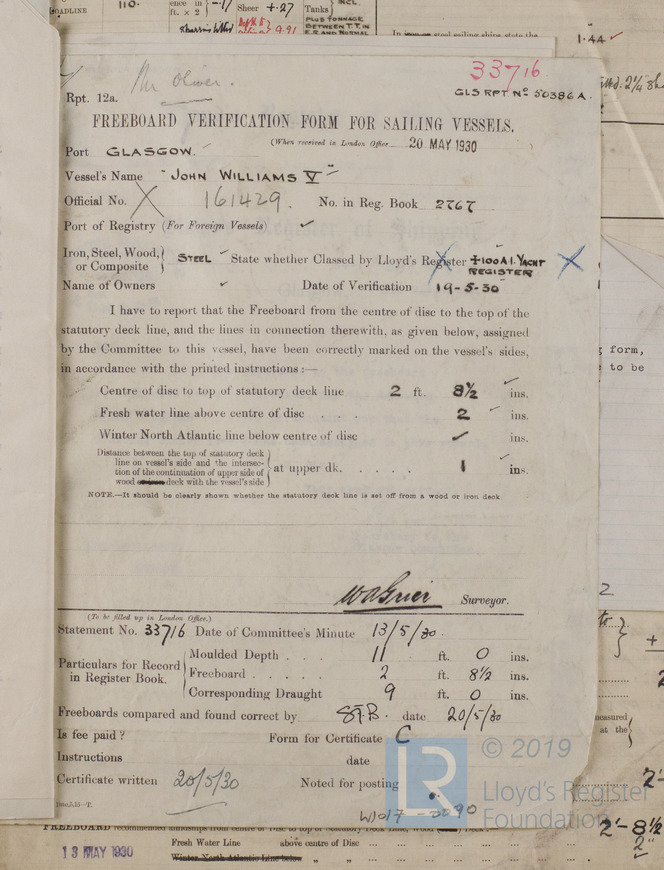 110.
ence in
ft. × 2
Sheer +.27
Tanks
PLUS TONNAGE
BETWEEN T.T. IN
E.R. AND NORMAL
1.44
33716
GLS RPT No 50386A.
Mr Oliver.
Rpt. 12a.
FREEBOARD VERIFICATION FORM FOR SAILING VESSELS.
(When received in London Office 20 MAY 1930 )
Port GLASGOW.
Vessel's Name "JOHN WILLIAMS V"
Official No. 161429. No. in Reg. Book 2767
Port of Registry (For Foreign Vessels) ✓
Iron, Steel, Wood, or Composite } STEEL State whether Classed by Lloyd's Register +100A1. YACHT REGISTER
Name of Owners ✓ Date of Verification 19-5-30
I have to report that the Freeboard from the centre of disc to the top of the
statutory deck line, and the lines in connection therewith, as given below, assigned
by the Committee to this vessel, have been correctly marked on the vessel's sides,
in accordance with the printed instructions :—
form,
to be
Centre of disc to top of statutory deck line 2 ft. 8½ ins.
Fresh water line above centre of disc . . . 2 ins.
Winter North Atlantic line below centre of disc ✓ ins.
Distance between the top of statutory deck
line on vessel's side and the intersec-
tion of the continuation of upper side of
wood deck with the vessel's side
at upper dk. . . . . . 1 ins.
NOTE.—It should be clearly shown whether the statutory deck line is set off from a wood or iron deck.
Surveyor.
(To be filled up in London Office.)
Statement No. 33716 Date of Committee's Minute 13/5/30.
Particulars for Record in Register Book.
Moulded Depth . . . 11 ft. 0 ins.
Freeboard . . . . . 2 ft. 8½ ins.
Corresponding Draught 9 ft. 0 ins.
Freeboards compared and found correct by date 20/5/30
easured
at the
Is fee paid ? Form for Certificate C
Instructions date
Certificate written 20/5/30 Noted for posting
W1017-0090
LR © 2019
Lloyd's Register
Foundation
2'-8½
13 MAY 1930
Fresh Water Line above centre of Disc
2"
Winter North Atlantic Line below " "